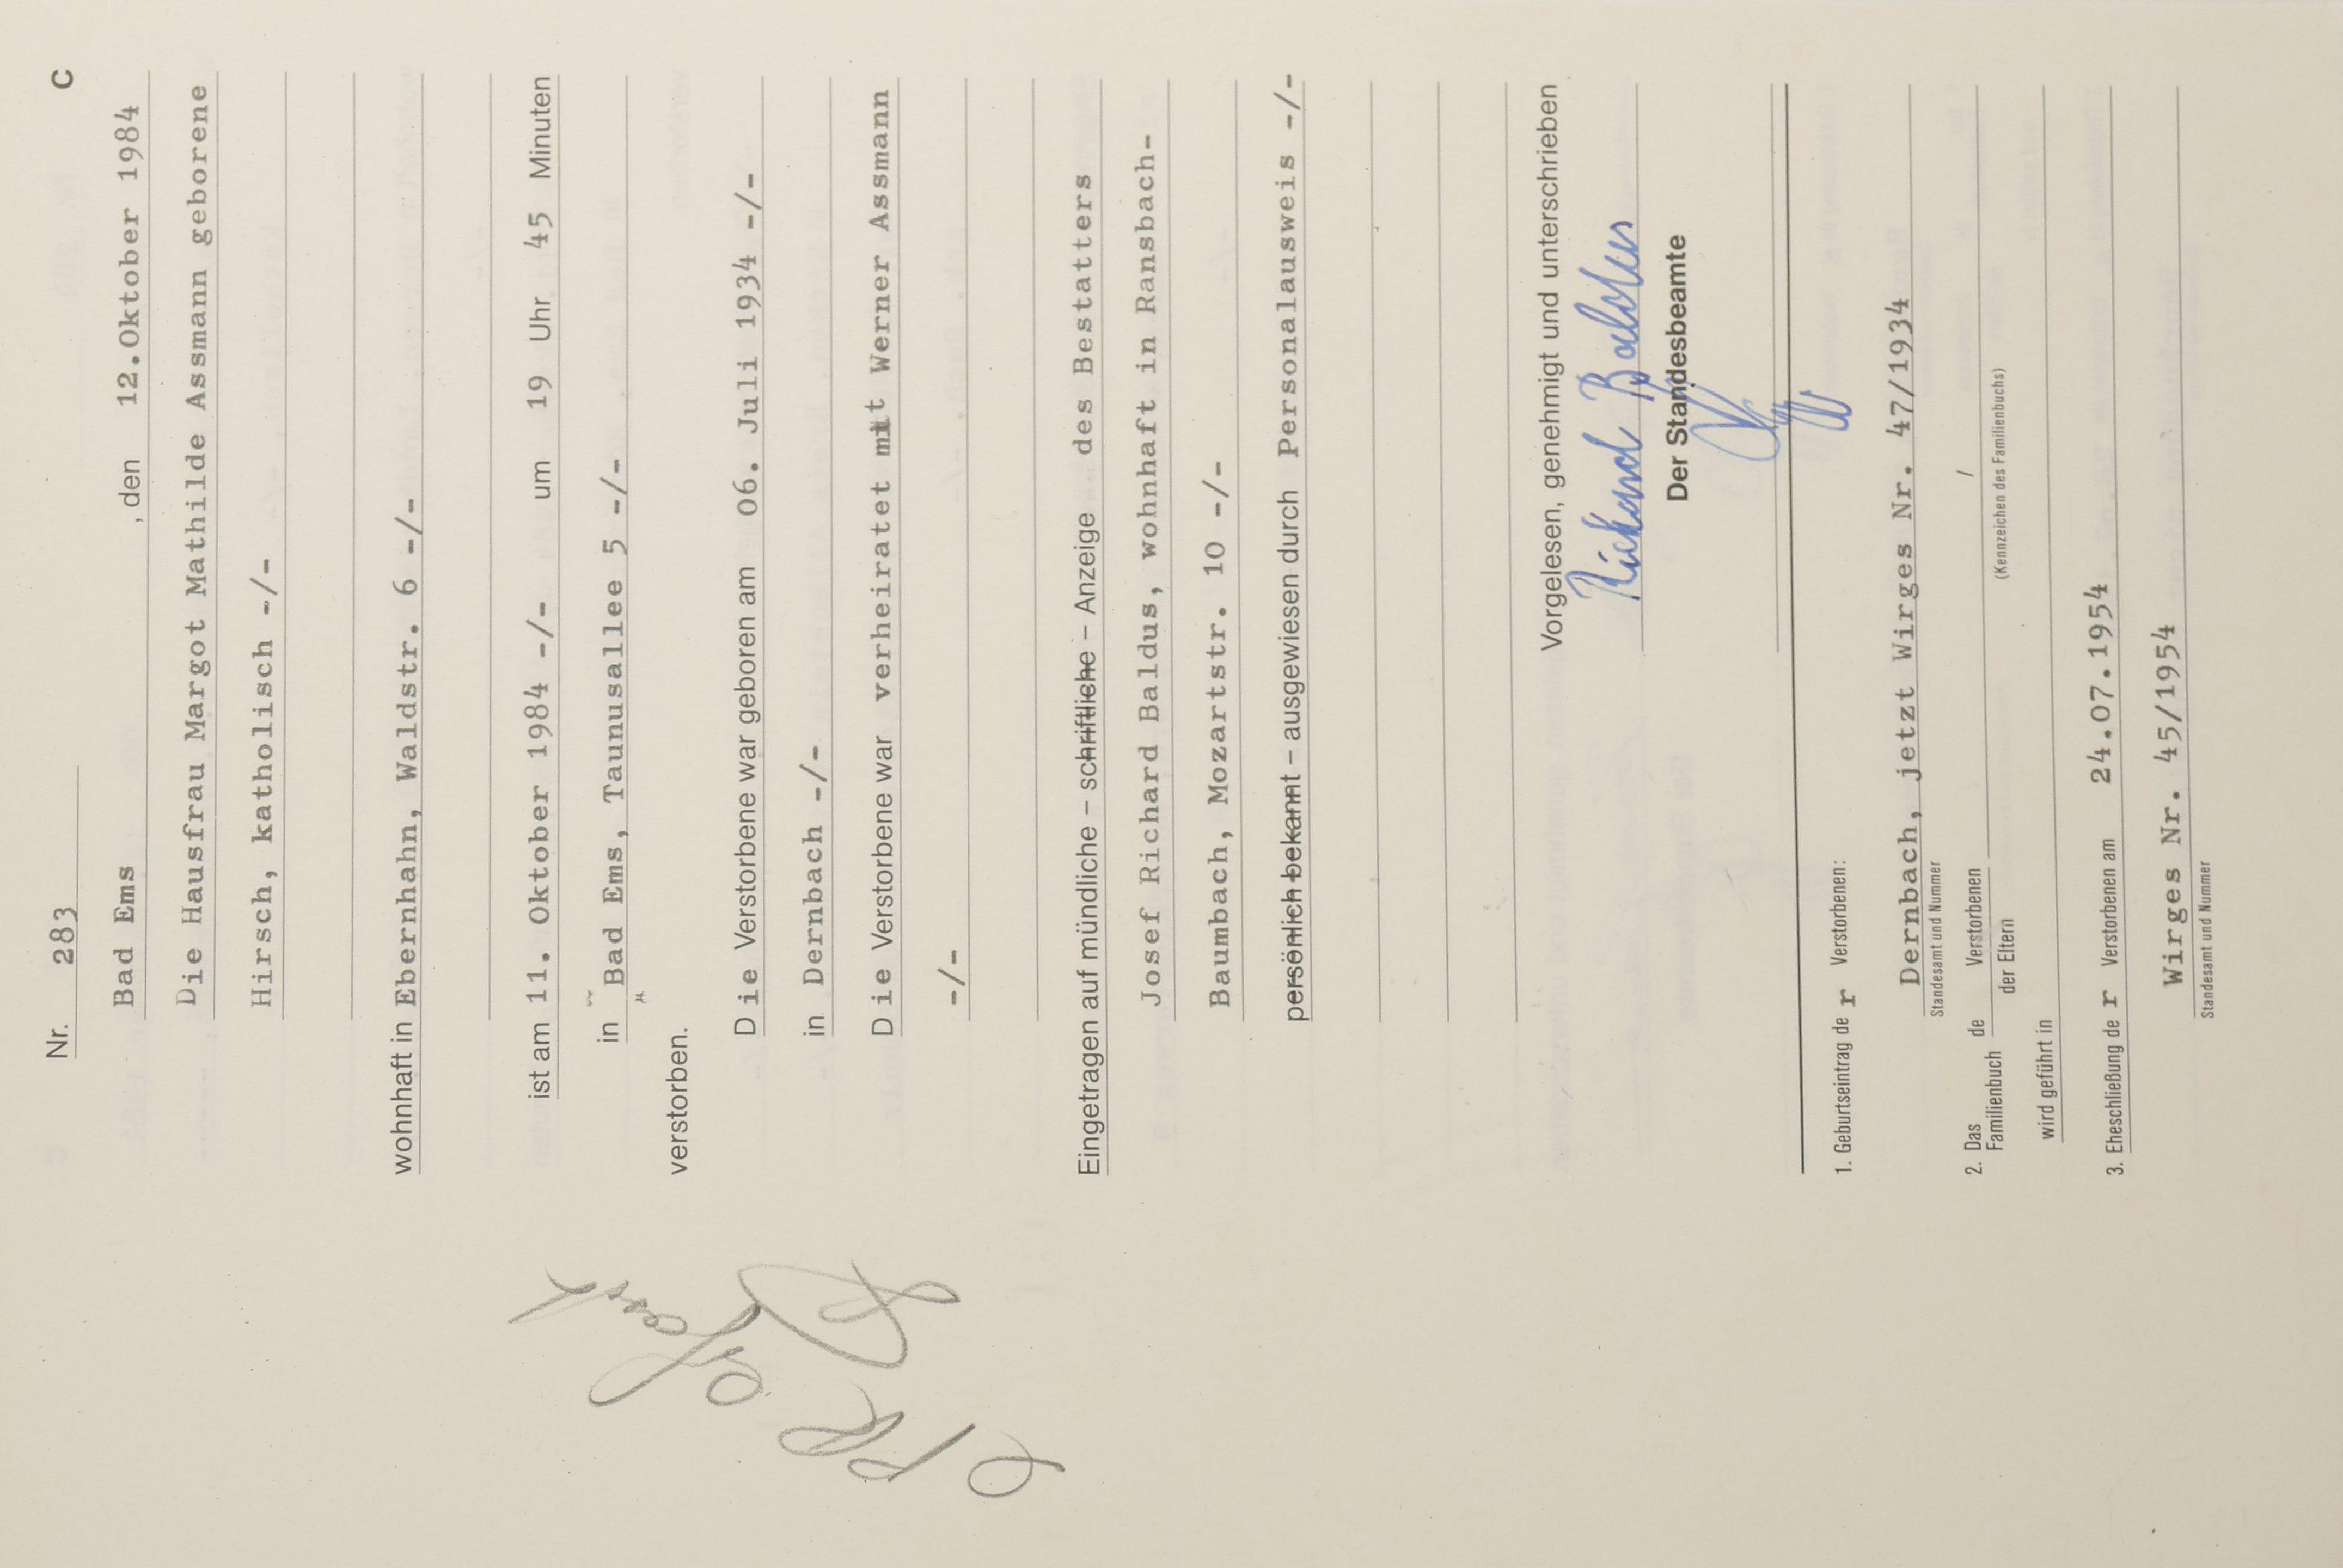 Nr. 283 C
Bad Ems , den 12.Oktober 1984
Die Hausfrau Margot Mathilde Assmann geborene
Hirsch, katholisch -/-
wohnhaft in Ebernhahn, Waldstr. 6 -/-
ist am 11. Oktober 1984 -/- um 19 Uhr 45 Minuten
in Bad Ems, Taunusallee 5 -/-
verstorben.
Die Verstorbene war geboren am 06. Juli 1934 -/-
in Dernbach -/-
Die Verstorbene war verheiratet mit Werner Assmann
-/-
Eingetragen auf mündliche – schriftliche – Anzeige des Bestatters
Josef Richard Baldus, wohnhaft in Ransbach-
Baumbach, Mozartstr. 10 -/-
persönlich bekannt – ausgewiesen durch Personalausweis -/-
Vorgelesen, genehmigt und unterschrieben
Richard Baldus
Der Standesbeamte
1. Geburtseintrag der Verstorbenen:
Dernbach, jetzt Wirges Nr. 47/1934
Standesamt und Nummer
2. Das Familienbuch de Verstorbenen /
der Eltern (Kennzeichen des Familienbuchs)
wird geführt in
3. Eheschließung der Verstorbenen am 24.07.1954
Wirges Nr. 45/1954
Standesamt und Nummer